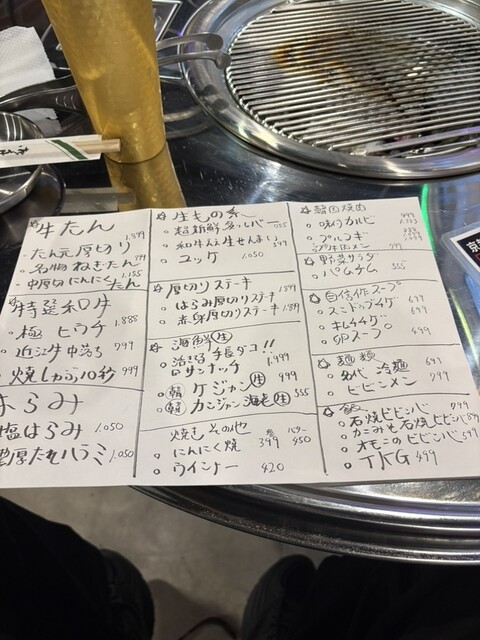 牛たん
たん元厚切り 1.899
名物ねぎたん
中厚切にんにくたん 1.155
特選和牛
極 ヒウチ 1.888
近江牛中落ち 999
焼しゃぶ10秒 999
はらみ
塩はらみ 1.050
濃厚たれハラミ 1.050
生もの系
超新鮮 レバー 555
和牛 生せんまい
ユッケ 1.050
厚切りステーキ
はらみ厚切りステーキ
赤身厚切りステーキ
海鮮 生
活きる 手長ダコ!!
サンナッチ 1.999
韓 ケジャン 生 999
韓 カンジャン海老 生 555
焼き その他
にんにく焼 349 バター 450
ウインナー 420
韓国焼肉
カルビ
プルコギ
野菜 サラダ
パムチム 555
自信作スープ
スンドゥブチゲ 699
キムチチゲ 699
スープ 499
麺類
冷麺 693
ビビンメン 799
飯
石焼ビビンバ 999
カニみそ石焼ビビンバ
オモニのビビンバ
TKG 499